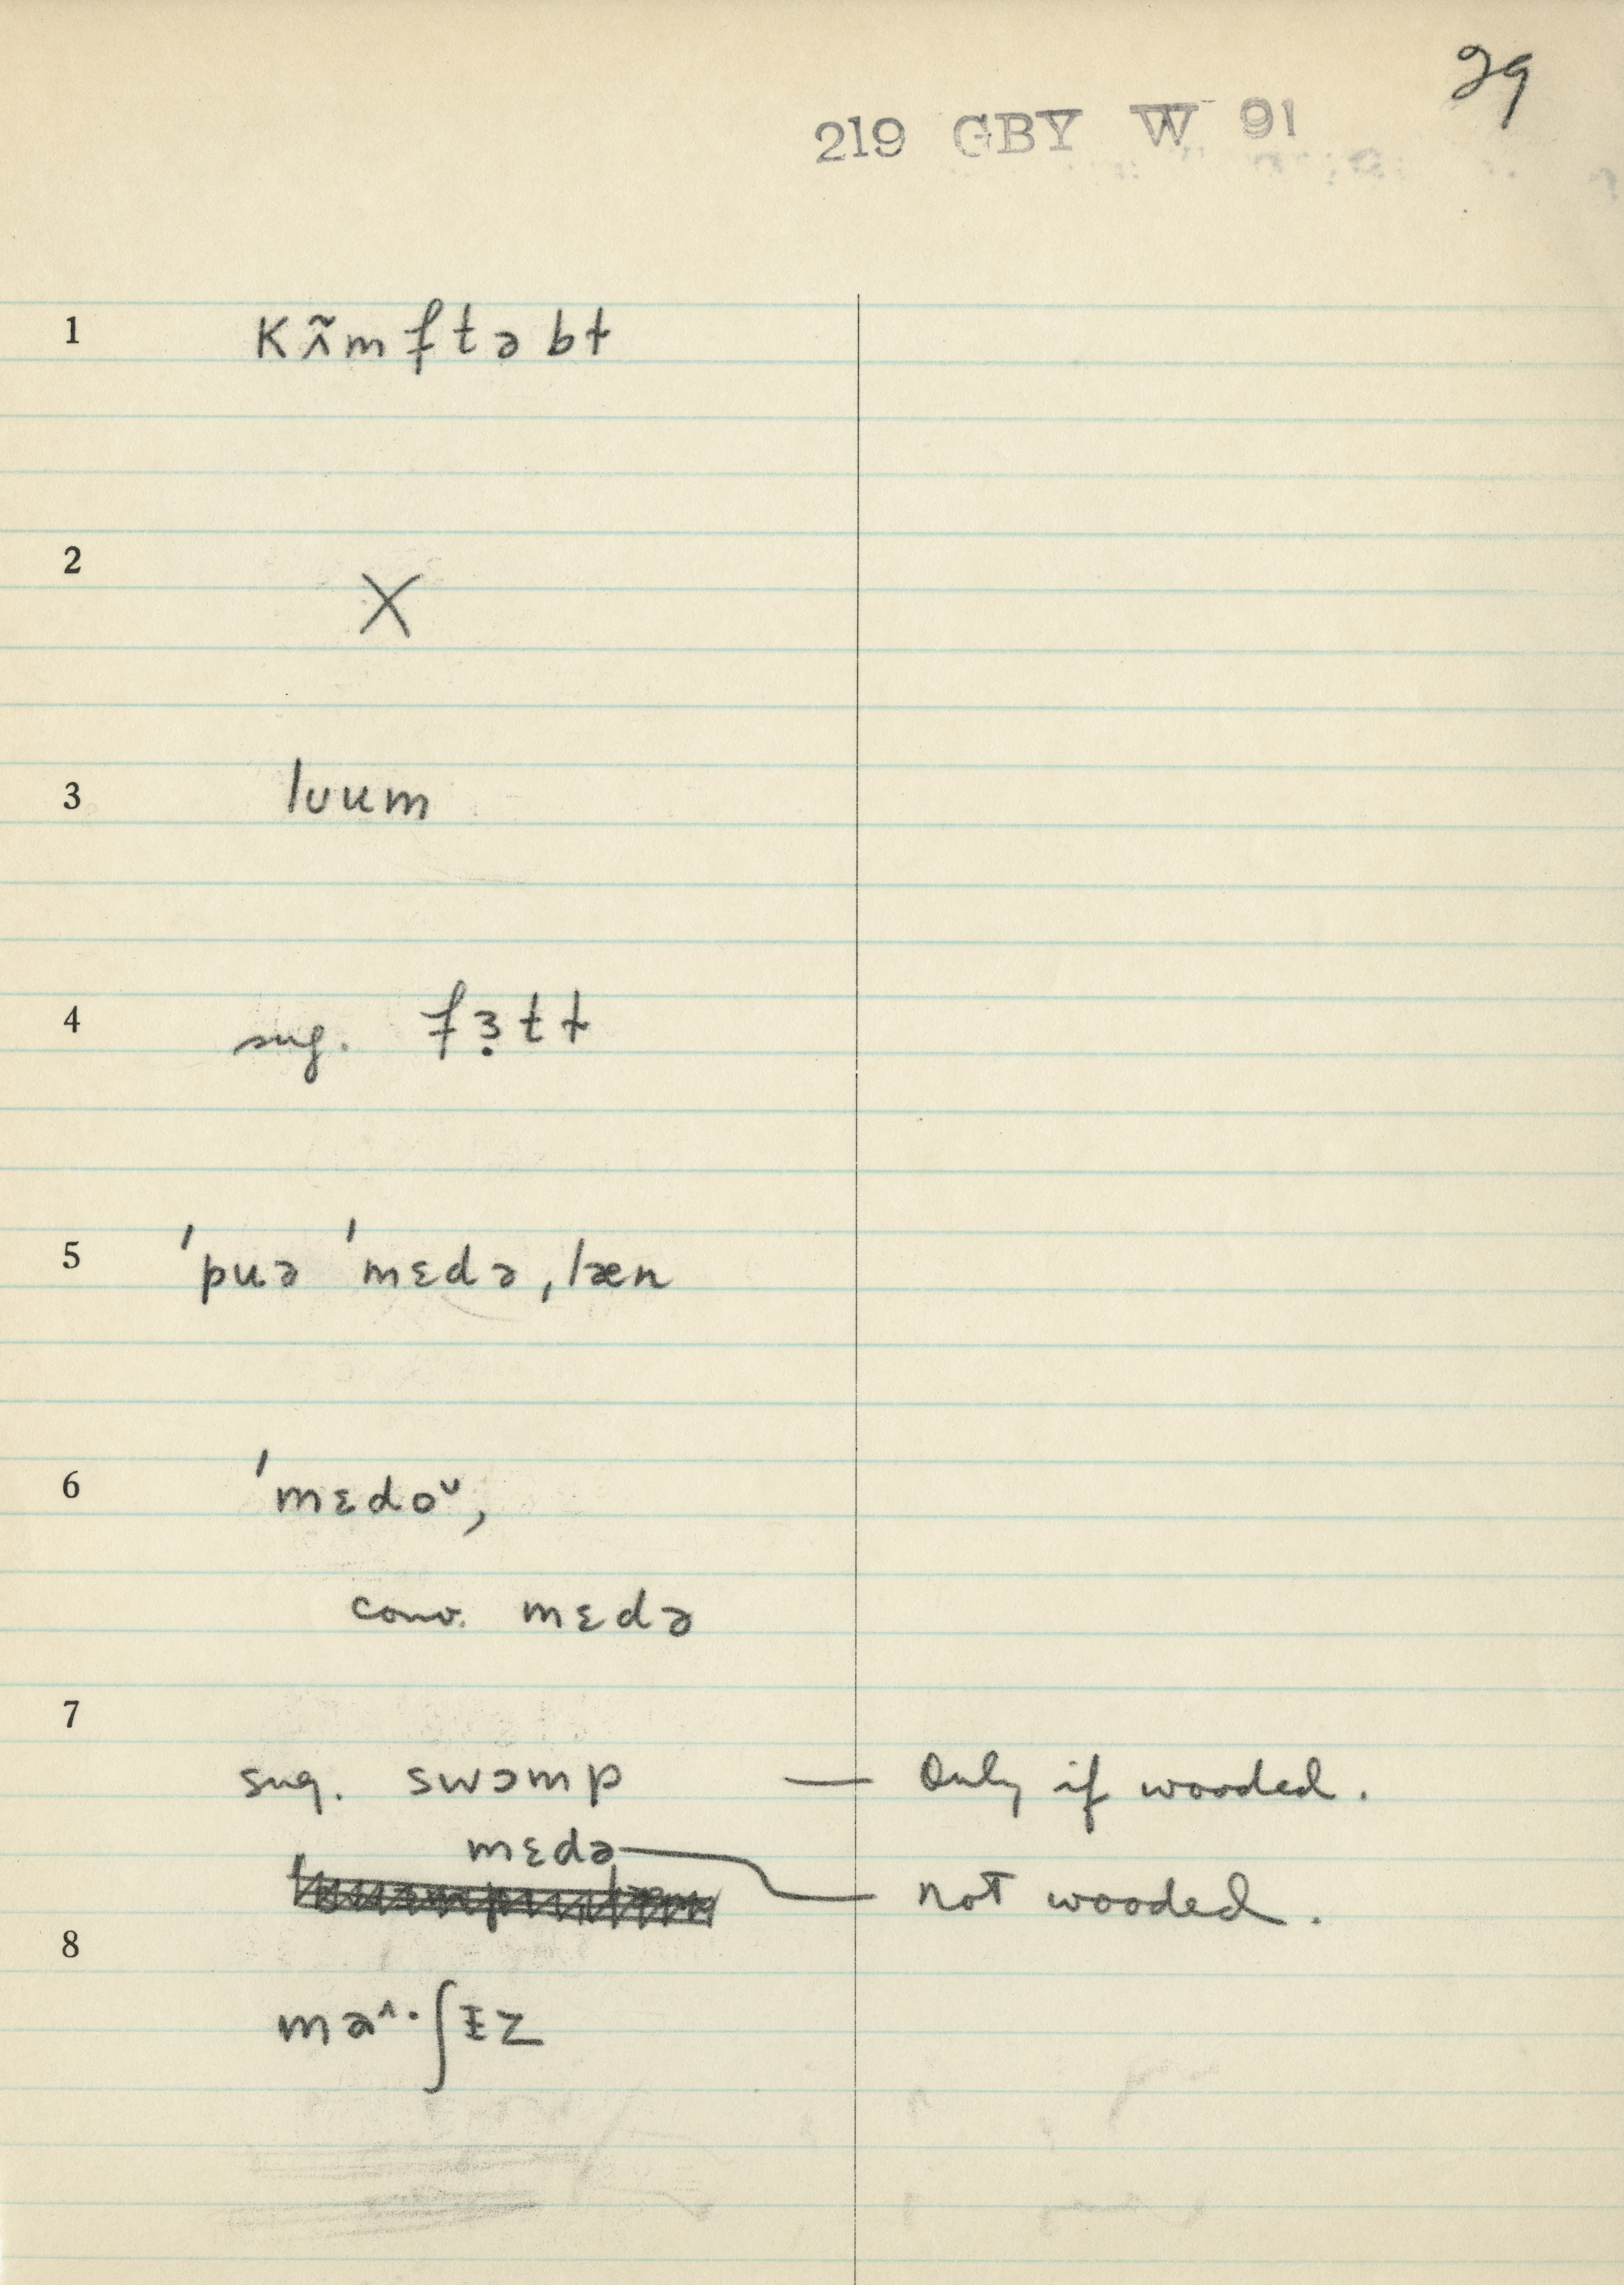 29
219 GBY W 91
1 kʌ̃mftəbɫ
2 X
3 luum
4 sug. fɜ̣tɫ
5 'puə 'mɛdə ,læn
6 'mɛdoᵘ,
conv. mɛdə
7
sug. swɔmp — Only if wooded.
mɛdə — not wooded.
8
maʌ·ʃɪz